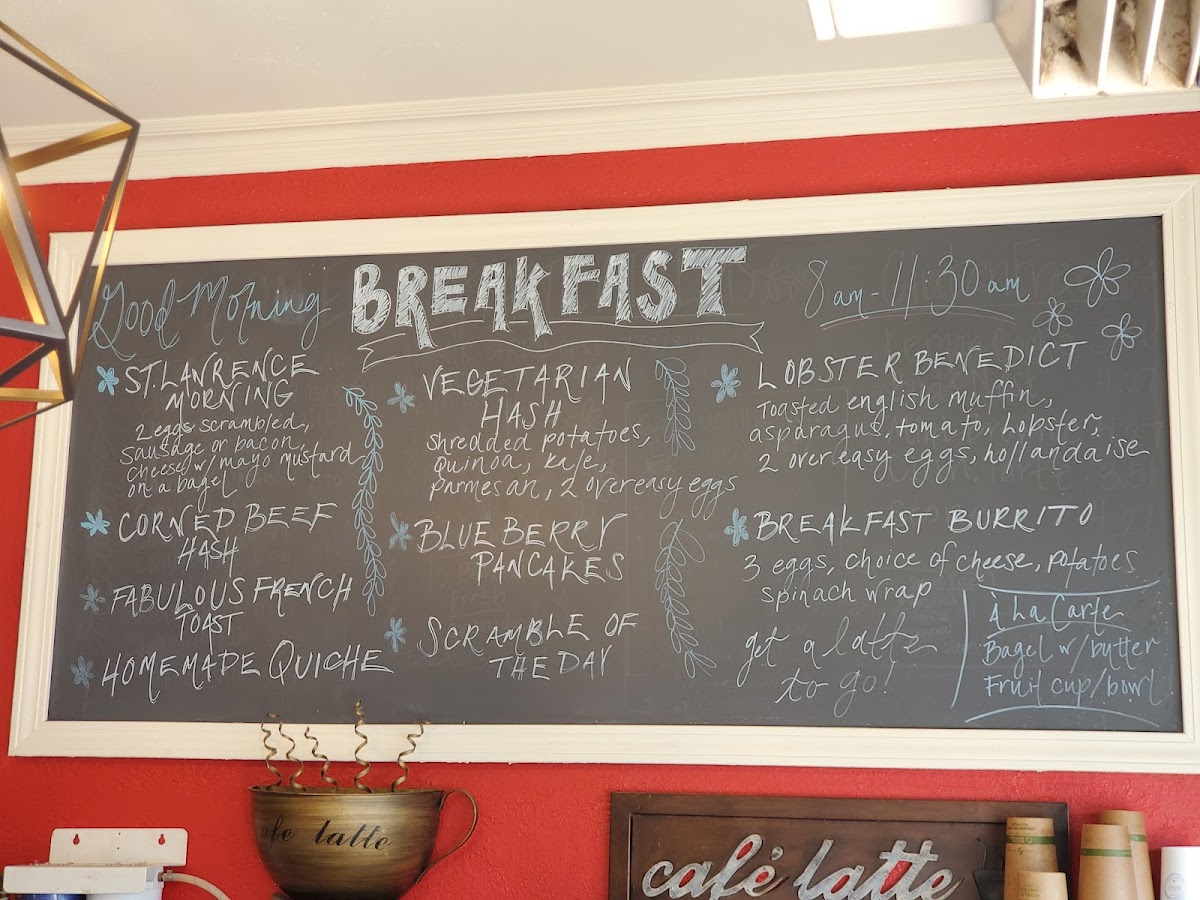 Good Morning
BREAKFAST
8 am - 11:30 am
ST. LAWRENCE
MORNING
2 eggs scrambled,
sausage or bacon
cheese w/ mayo mustard
on a bagel
CORNED BEEF
HASH
FABULOUS FRENCH
TOAST
HOMEMADE QUICHE
VEGETARIAN
HASH
shredded potatoes,
quinoa, kale,
parmesan, 2 over easy eggs
BLUEBERRY
PANCAKES
SCRAMBLE OF
THE DAY
LOBSTER BENEDICT
Toasted english muffin,
asparagus, tomato, lobster,
2 over easy eggs, hollandaise
BREAKFAST BURRITO
3 eggs, choice of cheese, potatoes
spinach wrap
get a latte
to go!
À La Carte
Bagel w/ butter
Fruit cup/bowl
cafe latte
café latte